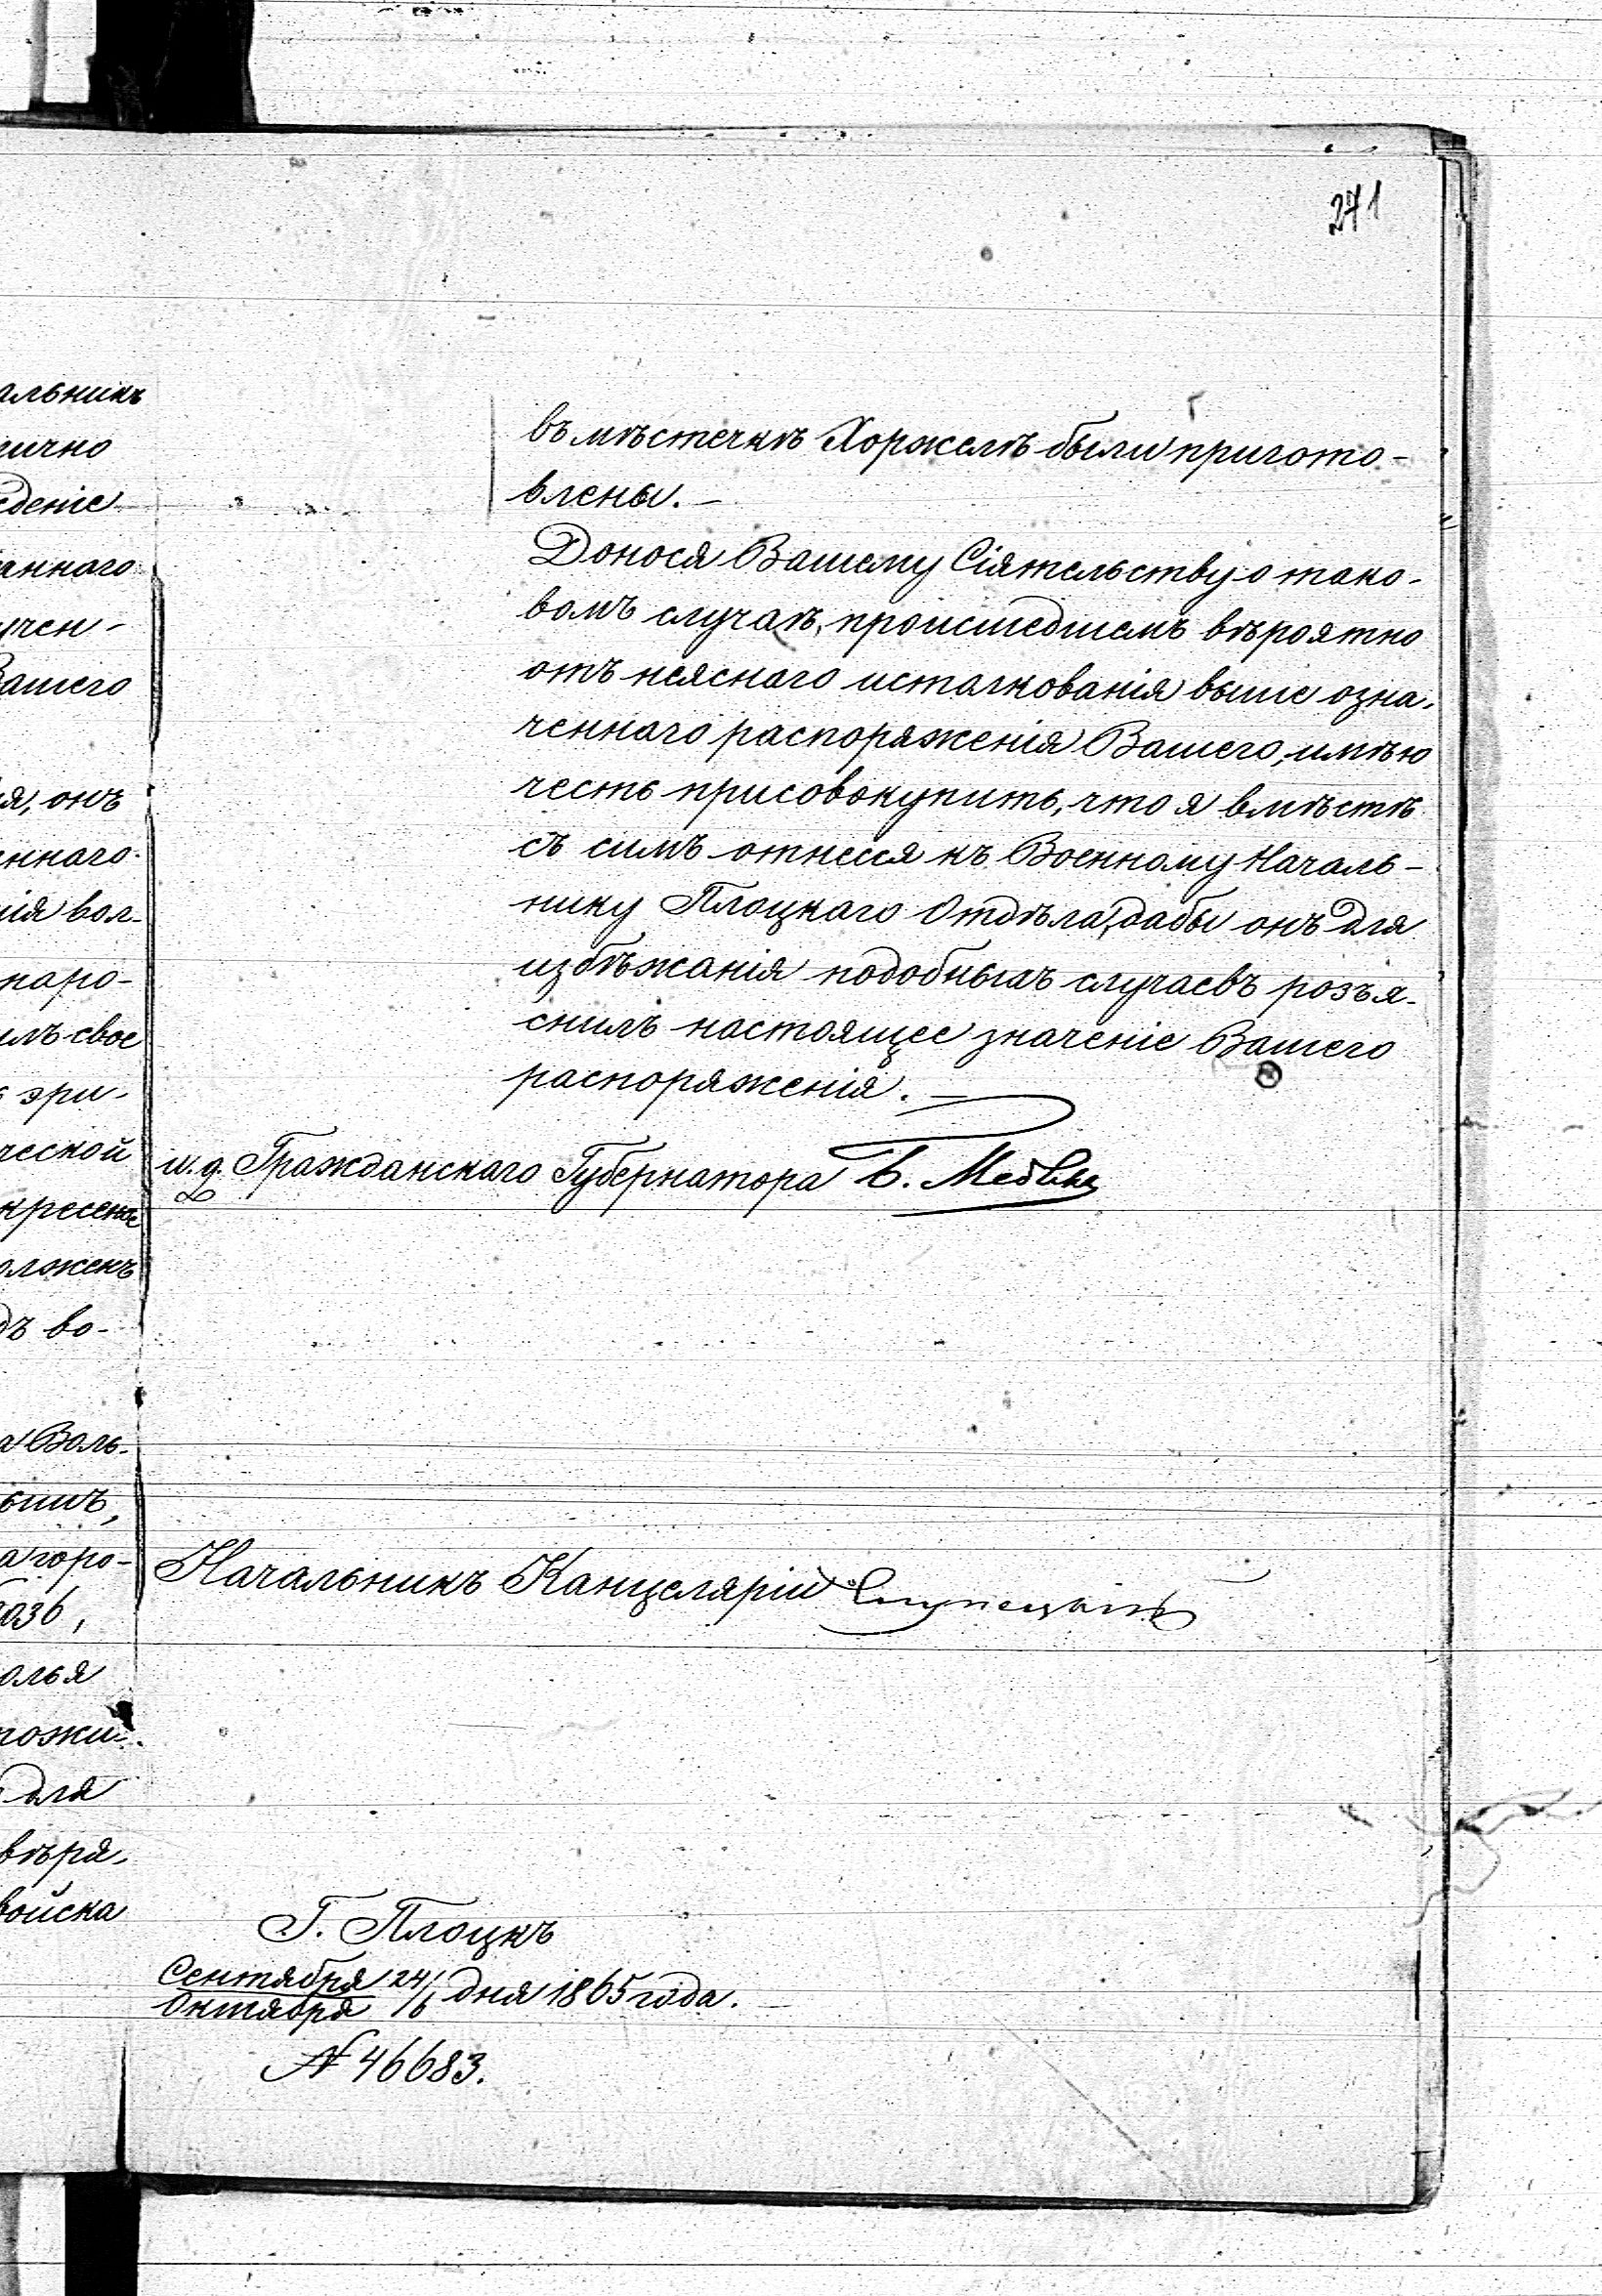 271
альникъ
лично
еденіе
аннаго
учен-
Вашего
я, онъ
еннаго
нія вол-
наро-
илъ свое
эри-
ческой
кресене
олженъ
дъ во-
а Воль-
а горо-
озъ,
олья
тожи-
для
ввѣря-
войска
въ мѣстечкѣ Хоржелѣ были пригото-
влены.—
Донося Вашему Сіятельству о тако-
вомъ случаѣ, происшедшемъ вѣроятно
отъ неяснаго истолкованія выше озна-
ченнаго распоряженія Вашего, имѣю
честь присовокупить, что я вмѣстѣ
съ симъ отнесся къ Военному Началь-
нику Плоцкаго Отдѣла, дабы онъ для
избѣжанія подобныхъ случаевъ розъя-
снилъ настоящее значеніе Вашего
распоряженія.—
и. д. Гражданскаго Губернатора
Начальникъ Канцеляріи
Г. Плоцкъ
Сентября 24/
Октября /6 дня 1865 года.
№ 46683.